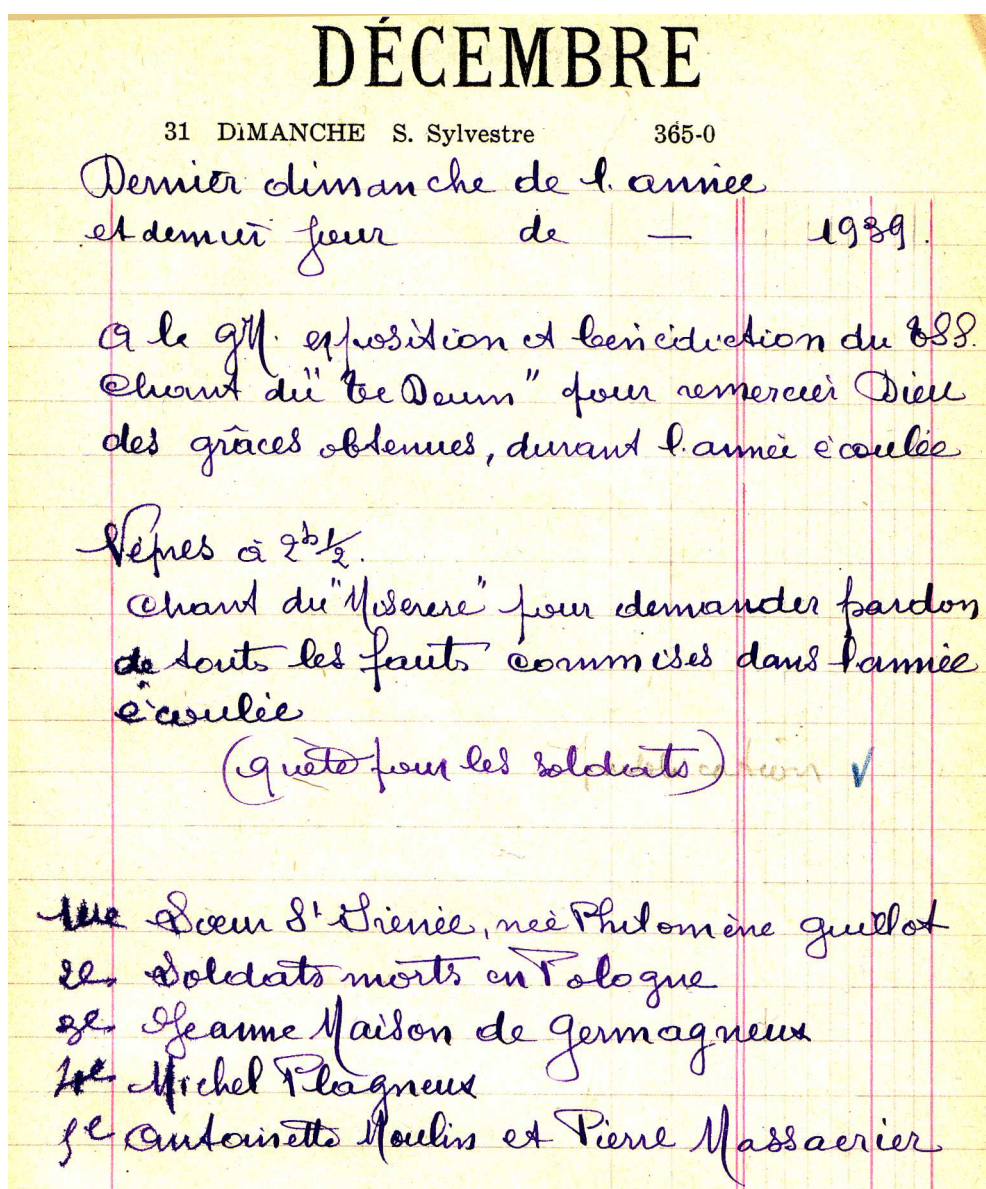 DÉCEMBRE
31 DIMANCHE S. Sylvestre 365-0
Dernier dimanche de l'année
et dernier jour de — 1939.
A la gM. exposition et bénédiction du TSS.
Chant du "Te Deum" pour remercier Dieu
des grâces obtenues, durant l'année écoulée
Vêpres à 2h 1/2.
Chant du "Miserere" pour demander pardon
de touts les fauts commises dans l'année
écoulée
(quête pour les soldats)
1ère Sœur St Irénée, née Philomène Guillot
2e Soldats morts en Pologne
3e Jeanne Maison de Germagneux
4e Michel Plagneux
5e Antoinette Moulin et Pierre Massacrier